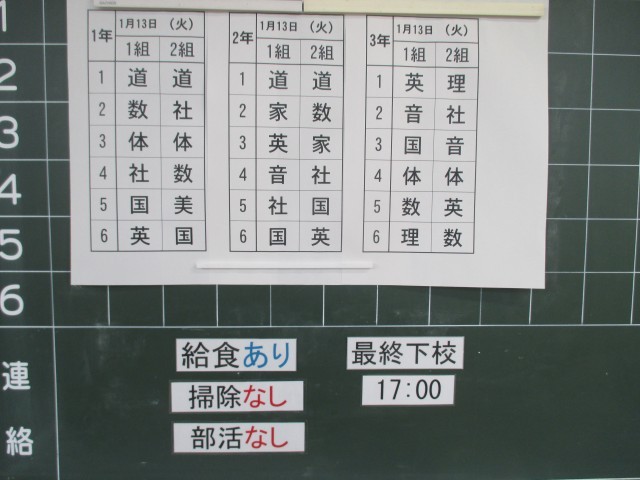 1年 1月13日 （火）
1組 2組
1 道 道
2 数 社
3 体 体
4 社 数
5 国 美
6 英 国
2年 1月13日 （火）
1組 2組
1 道 道
2 家 数
3 英 家
4 音 社
5 社 国
6 国 英
3年 1月13日 （火）
1組 2組
1 英 理
2 音 社
3 国 音
4 体 体
5 数 英
6 理 数
1
2
3
4
5
6
連絡
給食あり
掃除なし
部活なし
最終下校
17:00